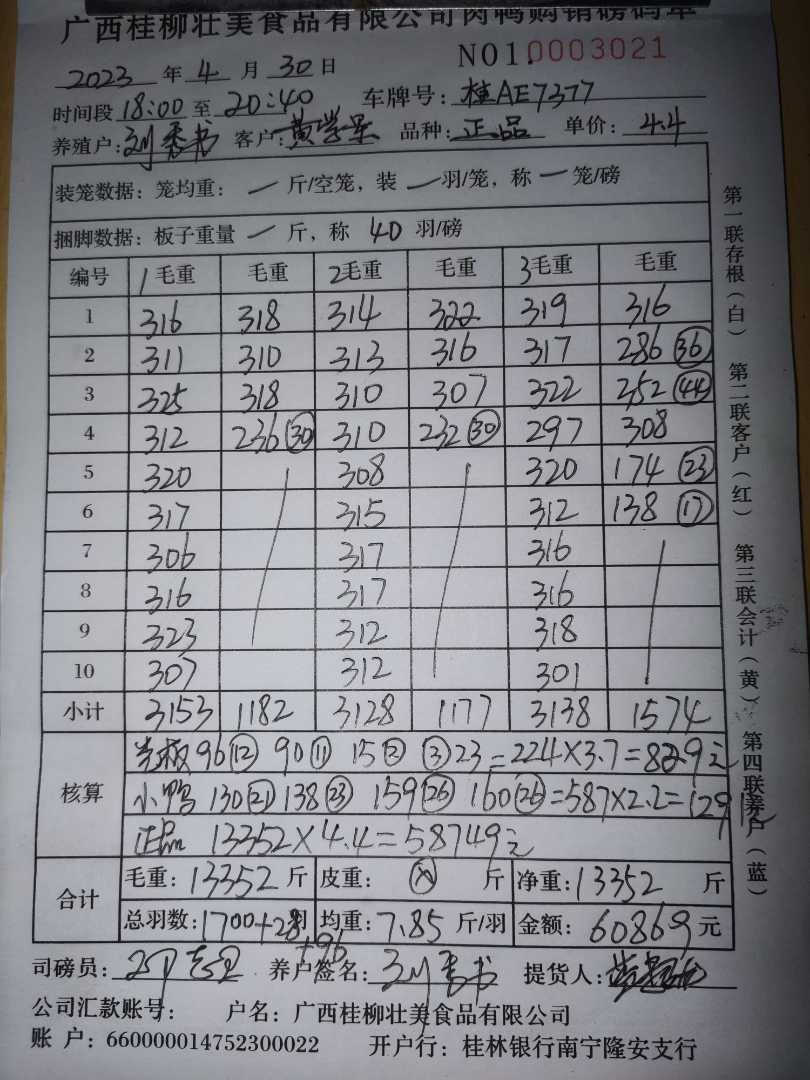 广西桂柳壮美食品有限公司肉鸭购销磅码单
NO1.0003021
2023年4月30日
时间段18:00至20:40 车牌号:桂AE7377
养殖户:刘秀书 客户:黄学军 品种:正品 单价:4.4
装笼数据:笼均重:一斤/空笼,装一羽/笼,称一笼/磅
捆脚数据:板子重量一斤,称40羽/磅
编号 1毛重 毛重 2毛重 毛重 3毛重 毛重
1 316 318 314 322 319 316
2 311 310 313 316 317 286(36)
3 325 318 310 307 322 252(44)
4 312 236(30) 310 232(30) 297 308
5 320 308 320 174(23)
6 317 315 312 138(17)
7 306 317 316
8 316 317 316
9 323 312 318
10 307 312 301
小计 3153 1182 3128 1177 3138 1574
核算
光板96(12) 90(11) 15(2) (3)23=224×3.7=829元
小鸭 130(21) 138(23) 159(26) 160(26)=587×2.2=1291元
正品 13352×4.4=58749元
合计
毛重:13352斤 皮重: 斤 净重:13352斤
总羽数:1700+28羽 均重:7.85斤/羽 金额:60869元
+96
司磅员: 养户签名:刘秀书 提货人:
公司汇款账号: 户名:广西桂柳壮美食品有限公司
账 户:660000014752300022 开户行:桂林银行南宁隆安支行
第一联存根(白) 第二联客户(红) 第三联会计(黄) 第四联养户(蓝)